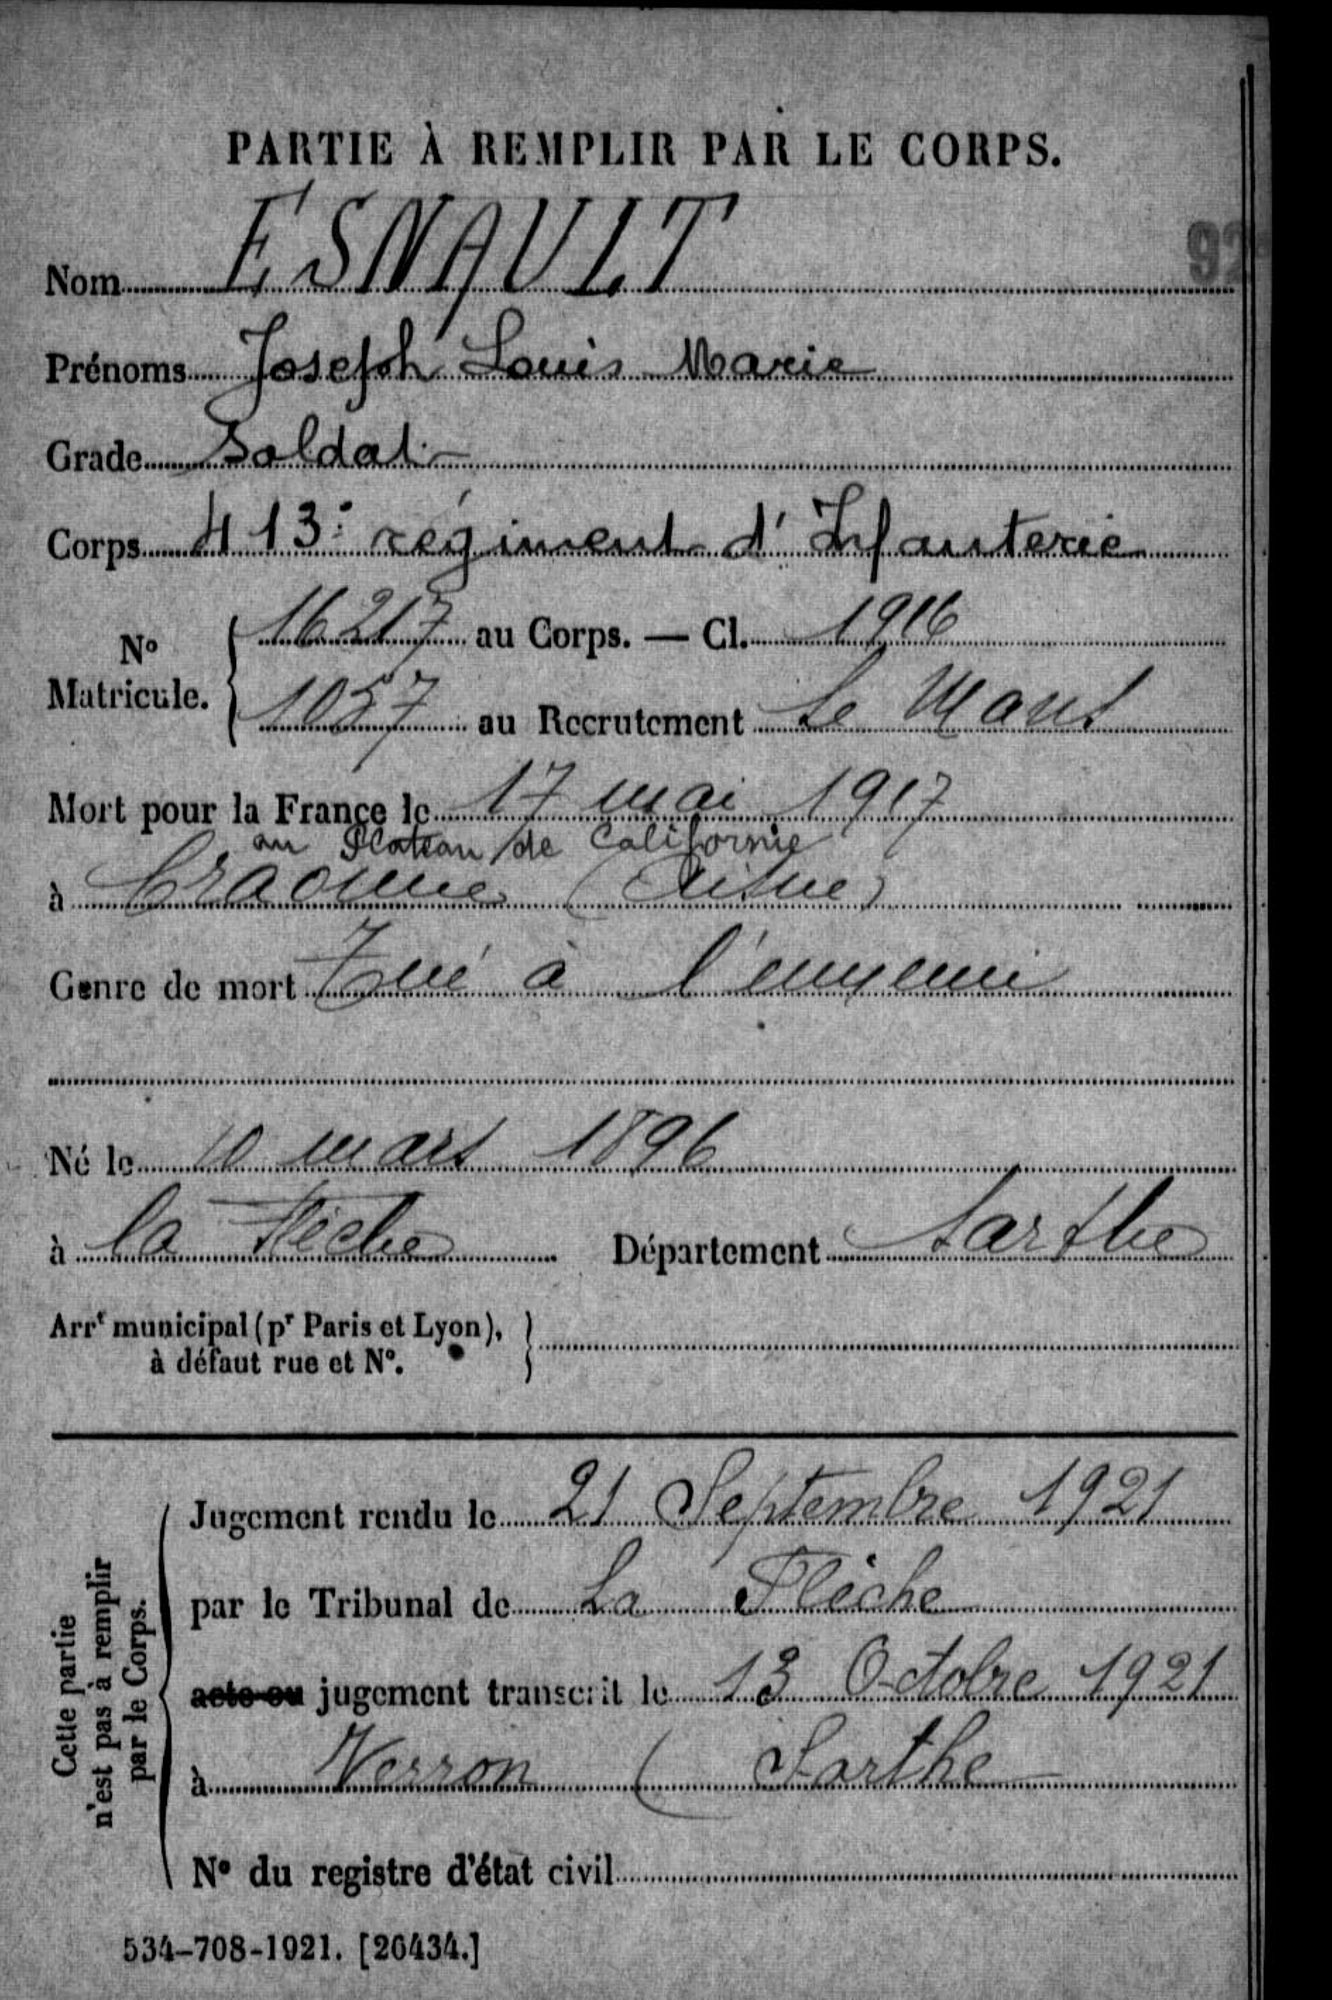 PARTIE À REMPLIR PAR LE CORPS.
92
Nom ESNAULT
Prénoms Joseph Louis Marie
Grade Soldat
Corps 413e régiment d'Infanterie
No Matricule. 16217 au Corps. — Cl. 1916
1057 au Recrutement Le Mans
Mort pour la France le 17 mai 1917
au Plateau de Californie
à Craonne (Aisne)
Genre de mort Tué à l'ennemi
Né le 10 mars 1896
à la Flèche Département Sarthe
Arrt municipal (pr Paris et Lyon),
à défaut rue et No.
Cette partie
n'est pas à remplir
par le Corps.
Jugement rendu le 21 Septembre 1921
par le Tribunal de La Flèche
acte ou jugement transcrit le 13 Octobre 1921
à Verron (Sarthe
No du registre d'état civil
534-708-1921. [26434.]